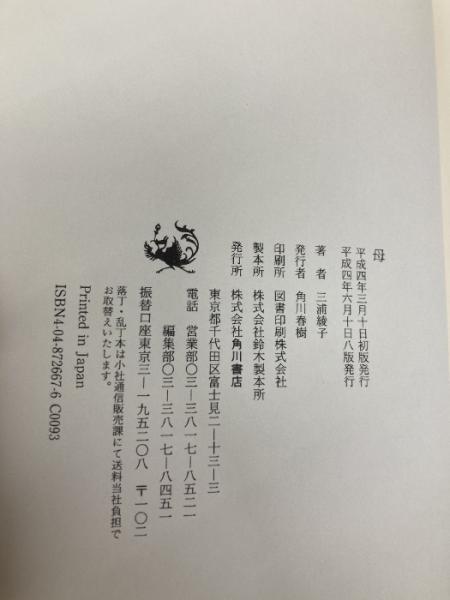 母
平成四年三月十日初版発行
平成四年六月十日八版発行
著者 三浦綾子
発行者 角川春樹
印刷所 図書印刷株式会社
製本所 株式会社鈴木製本所
発行所 株式会社角川書店
東京都千代田区富士見二―十三―三
電話 営業部〇三―三八一七―八五二一
編集部〇三―三八一七―八四五一
振替口座東京三―一九五二〇八 〒一〇二
落丁・乱丁本は小社通信販売課にて送料当社負担で
お取替えいたします。
Printed in Japan
ISBN4-04-872667-6 C0093